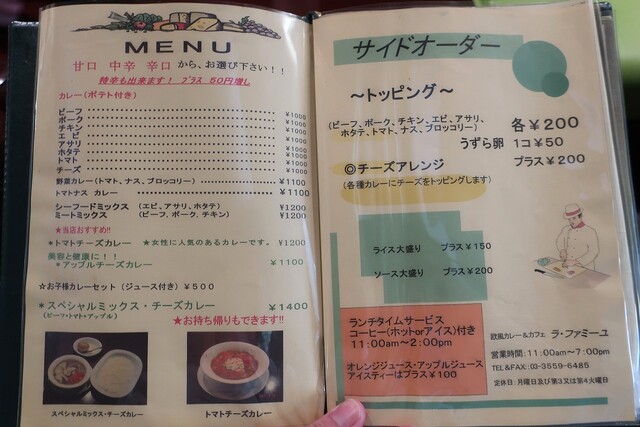 MENU
甘口 中辛 辛口 から、お選び下さい!!
特辛も出来ます! プラス 50円増し
カレー(ポテト付き)
ビーフ ¥1000
ポーク ¥1000
チキン ¥1000
エビ ¥1000
アサリ ¥1000
ホタテ ¥1000
トマト ¥1000
チーズ ¥1000
野菜カレー(トマト、ナス、ブロッコリー) ¥1100
トマトナス カレー ¥1100
シーフードミックス (エビ、アサリ、ホタテ) ¥1200
ミートミックス (ビーフ、ポーク、チキン) ¥1200
★当店おすすめ!!
*トマトチーズカレー ★女性に人気のあるカレーです。 ¥1200
美容と健康に!!
*アップルチーズカレー ¥1100
☆お子様カレーセット(ジュース付き)¥500
*スペシャルミックス・チーズカレー ¥1400
(ビーフ・トマト・アップル)
★お持ち帰りもできます!!
スペシャルミックス・チーズカレー
トマトチーズカレー
サイドオーダー
~トッピング~
(ビーフ、ポーク、チキン、エビ、アサリ、
ホタテ、トマト、ナス、ブロッコリー) 各¥200
うずら卵 1コ¥50
◎チーズアレンジ プラス¥200
(各種カレーにチーズをトッピングします)
ライス大盛り プラス¥150
ソース大盛り プラス¥200
ランチタイムサービス
コーヒー(ホットorアイス)付き
11:00am~2:00pm
オレンジジュース・アップルジュース
アイスティーはプラス¥100
欧風カレー&カフェ ラ・ファミーユ
営業時間:11:00am~7:00pm
TEL&FAX:03-3559-6485
定休日:月曜日及び第3又は第4火曜日